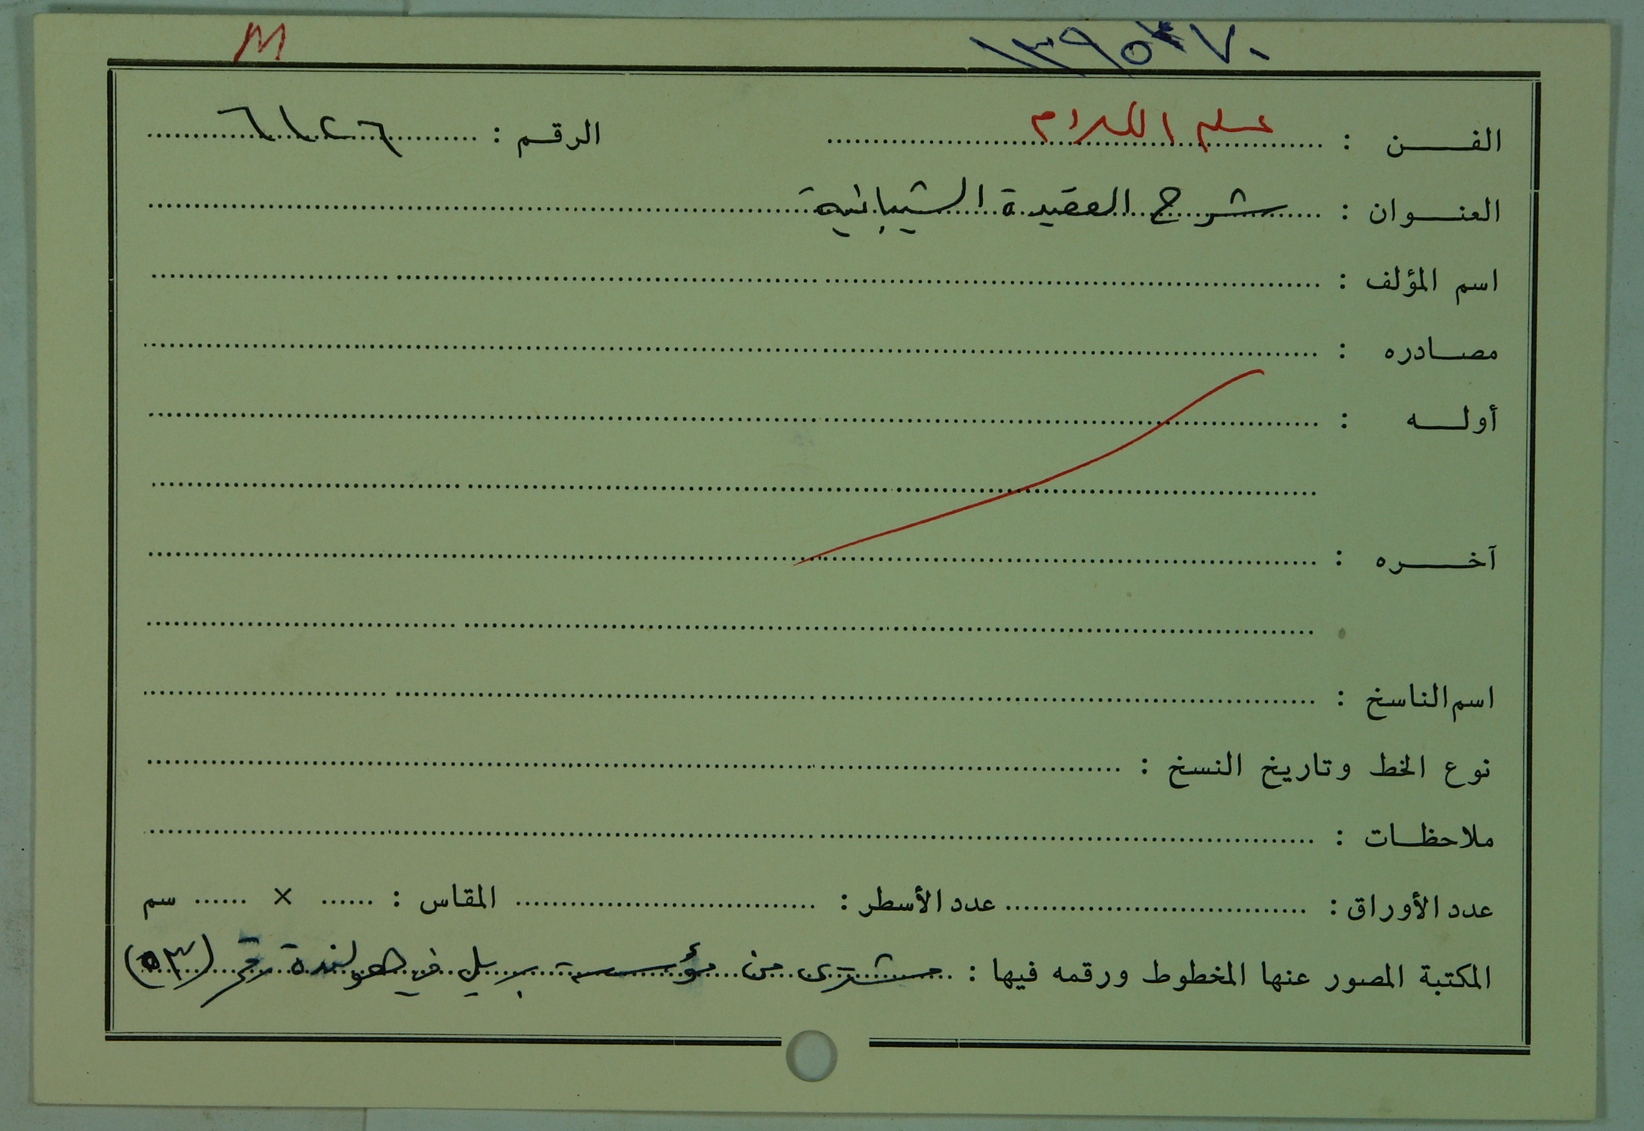 M ١٣٩٥٣٧٠
الفن : علم الكلام الرقم : ٦١٢٦
العنوان : شرح العقيدة الشيبانية
اسم المؤلف :
مصادره :
أوله :
آخره :
اسم الناسخ :
نوع الخط وتاريخ النسخ :
ملاحظات :
عدد الأوراق : عدد الأسطر : المقاس : × سم
المكتبة المصور عنها المخطوط ورقمه فيها : مشترى من مؤسسة بريل في هولندة رقم (٥٣)